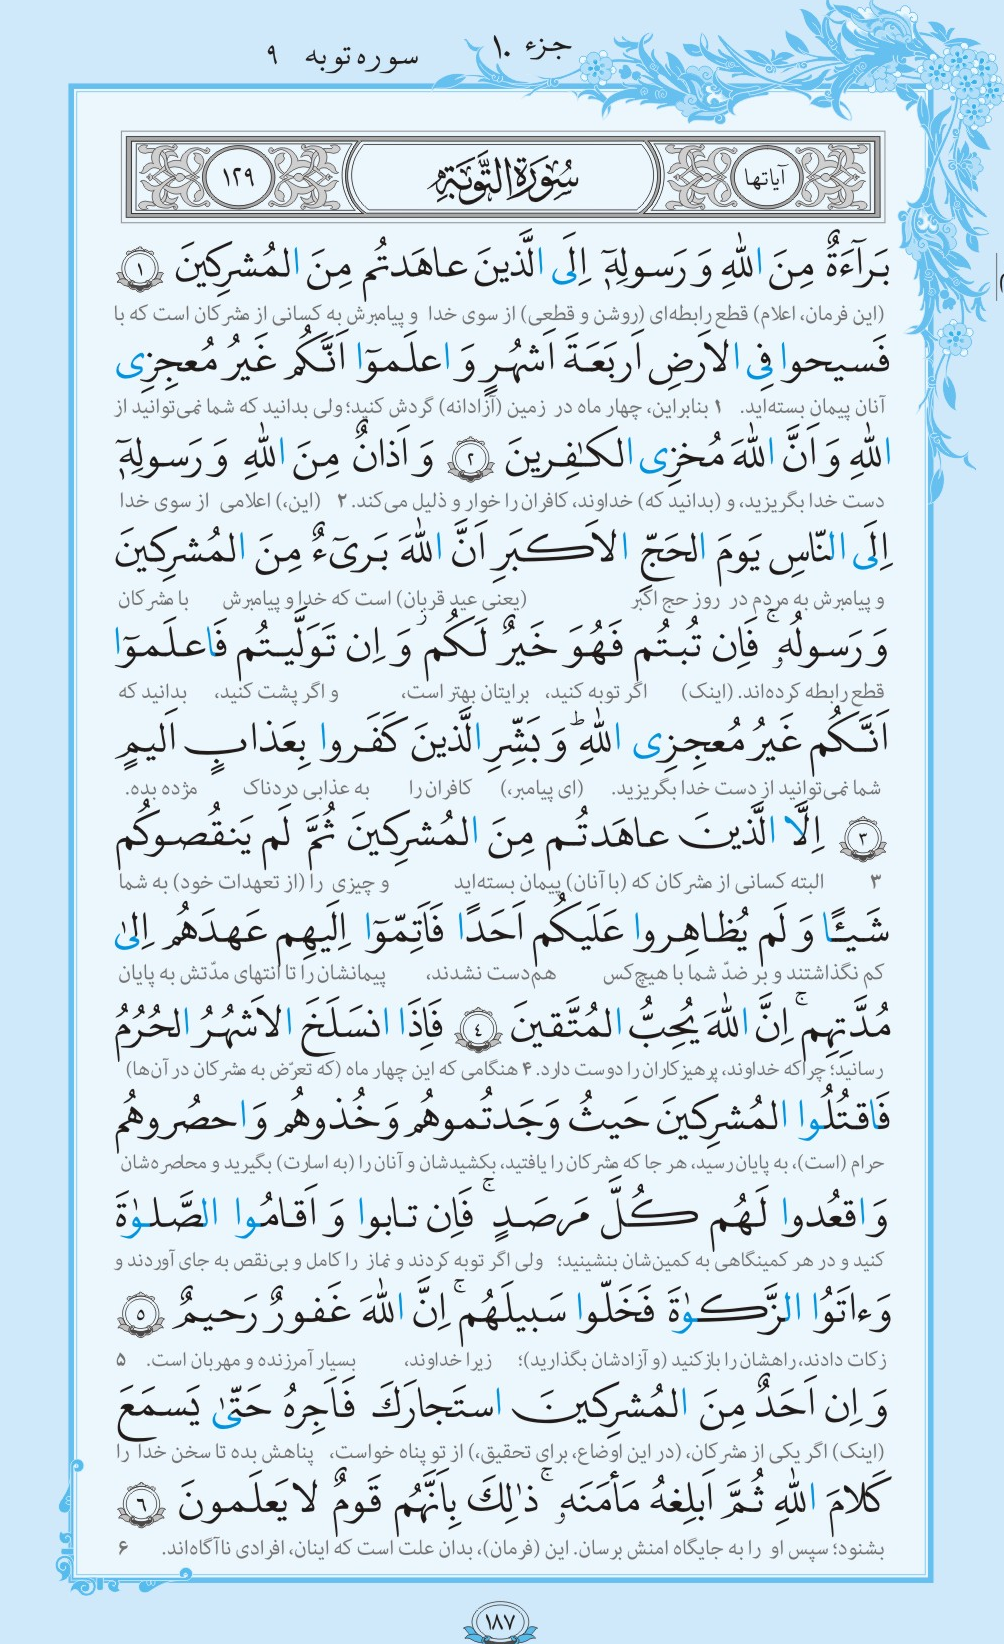 جزء ۱۰
سوره توبه ۹
آیاتها
سُورَةُ التَّوبَةِ
۱۲۹
بَرَآءَةٌ مِنَ اللهِ وَ رَسولِهٖٓ اِلَى الَّذينَ عاهَدتُم مِنَ المُشرِكينَ ١
(این فرمان، اعلام) قطع رابطه‌ای (روشن و قطعی) از سوی خدا و پیامبرش به کسانی از مشرکان است که با
فَسيحوا فِى الاَرضِ اَربَعَةَ اَشهُرٍ وَ اعلَموٓا اَنَّكُم غَيرُ مُعجِزِى
آنان پیمان بسته‌اید. ۱ بنابراین، چهار ماه در زمین (آزادانه) گردش کنید؛ ولی بدانید که شما نمی‌توانید از
اللهِ وَ اَنَّ اللهَ مُخزِى الكـٰفِرينَ ٢ وَ اَذانٌ مِنَ اللهِ وَ رَسولِهٖٓ
دست خدا بگریزید، و (بدانید که) خداوند، کافران را خوار و ذلیل می‌کند. ۲ (این،) اعلامی از سوی خدا
اِلَى النّاسِ يَومَ الحَجِّ الاَكبَرِ اَنَّ اللهَ بَرىءٌ مِنَ المُشرِكينَ
و پیامبرش به مردم در روز حج اکبر (یعنی عید قربان) است که خدا و پیامبرش با مشرکان
وَ رَسولُهٗ ۚ فَاِن تُبتُم فَهُوَ خَيرٌ لَكُم ۖ وَ اِن تَوَلَّيتُم فَاعلَموٓا
قطع رابطه کرده‌اند. (اینک) اگر توبه کنید، برایتان بهتر است، و اگر پشت کنید، بدانید که
اَنَّكُم غَيرُ مُعجِزِى اللهِ ؕ وَ بَشِّرِ الَّذينَ كَفَروا بِعَذابٍ اَليمٍ
شما نمی‌توانید از دست خدا بگریزید. (ای پیامبر،) کافران را به عذابی دردناک مژده بده.
٣ اِلَّا الَّذينَ عاهَدتُم مِنَ المُشرِكينَ ثُمَّ لَم يَنقُصوكُم
۳ البته کسانی از مشرکان که (با آنان) پیمان بسته‌اید و چیزی را (از تعهدات خود) به شما
شَيـًٔا وَ لَم يُظاهِروا عَلَيكُم اَحَدًا فَاَتِمّوٓا اِلَيهِم عَهدَهُم اِلىٰ
کم نگذاشتند و بر ضدّ شما با هیچ‌کس هم‌دست نشدند، پیمانشان را تا انتهای مدّتش به پایان
مُدَّتِهِم ۚ اِنَّ اللهَ يُحِبُّ المُتَّقينَ ٤ فَاِذَا انسَلَخَ الاَشهُرُ الحُرُمُ
رسانید؛ چراکه خداوند، پرهیزکاران را دوست دارد. ۴ هنگامی که این چهار ماه (که تعرّض به مشرکان در آن‌ها)
فَاقتُلُوا المُشرِكينَ حَيثُ وَجَدتُموهُم وَ خُذوهُم وَ احصُروهُم
حرام (است)، به پایان رسید، هر جا که مشرکان را یافتید، بکشیدشان و آنان را (به اسارت) بگیرید و محاصره‌شان
وَ اقعُدوا لَهُم كُلَّ مَرصَدٍ ۚ فَاِن تابوا وَ اَقامُوا الصَّلوٰةَ
کنید و در هر کمینگاهی به کمین‌شان بنشینید؛ ولی اگر توبه کردند و نماز را کامل و بی‌نقص به جای آوردند و
وَ ءاتَوُا الزَّكوٰةَ فَخَلّوا سَبيلَهُم ۚ اِنَّ اللهَ غَفورٌ رَحيمٌ ٥
زکات دادند، راهشان را بازکنید (و آزادشان بگذارید)؛ زیرا خداوند، بسیار آمرزنده و مهربان است. ۵
وَ اِن اَحَدٌ مِنَ المُشرِكينَ استَجارَكَ فَاَجِرهُ حَتّىٰ يَسمَعَ
(اینک) اگر یکی از مشرکان، (در این اوضاع، برای تحقیق،) از تو پناه خواست، پناهش بده تا سخن خدا را
كَلامَ اللهِ ثُمَّ اَبلِغهُ مَأمَنَهٗ ۚ ذٰلِكَ بِاَنَّهُم قَومٌ لا يَعلَمونَ ٦
بشنود؛ سپس او را به جایگاه امنش برسان. این (فرمان)، بدان علت است که اینان، افرادی ناآگاه‌اند. ۶
۱۸۷